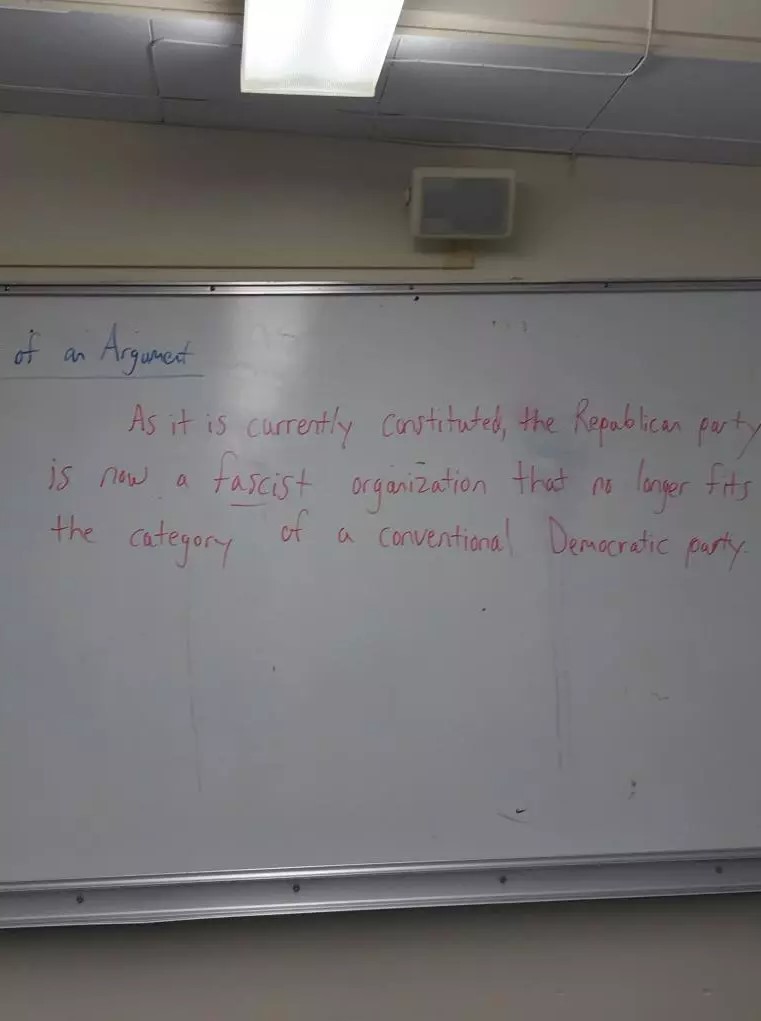 of an Argument
As it is currently constituted, the Republican party
is now a fascist organization that no longer fits
the category of a conventional Democratic party.